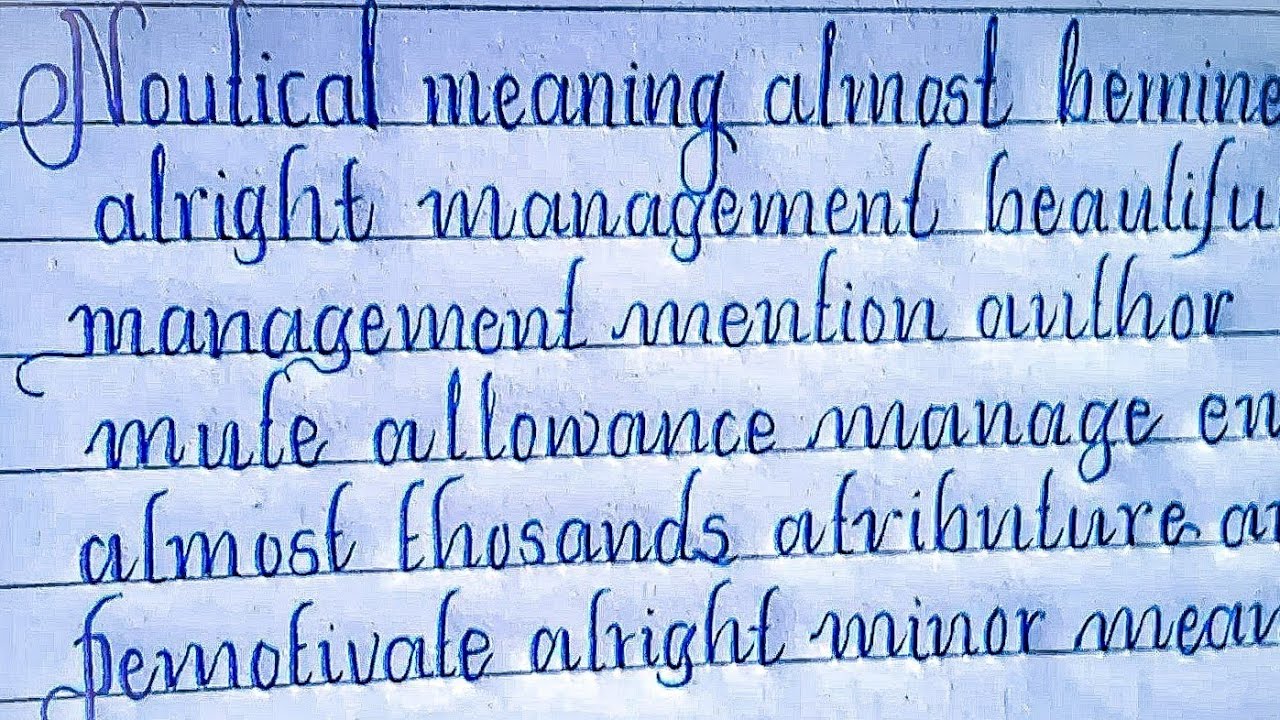 Noutical meaning almost hemine
alright management beautifu
management mention author
mute allowance manage en
almost thosands atributure a
pemotivate alright minor mean